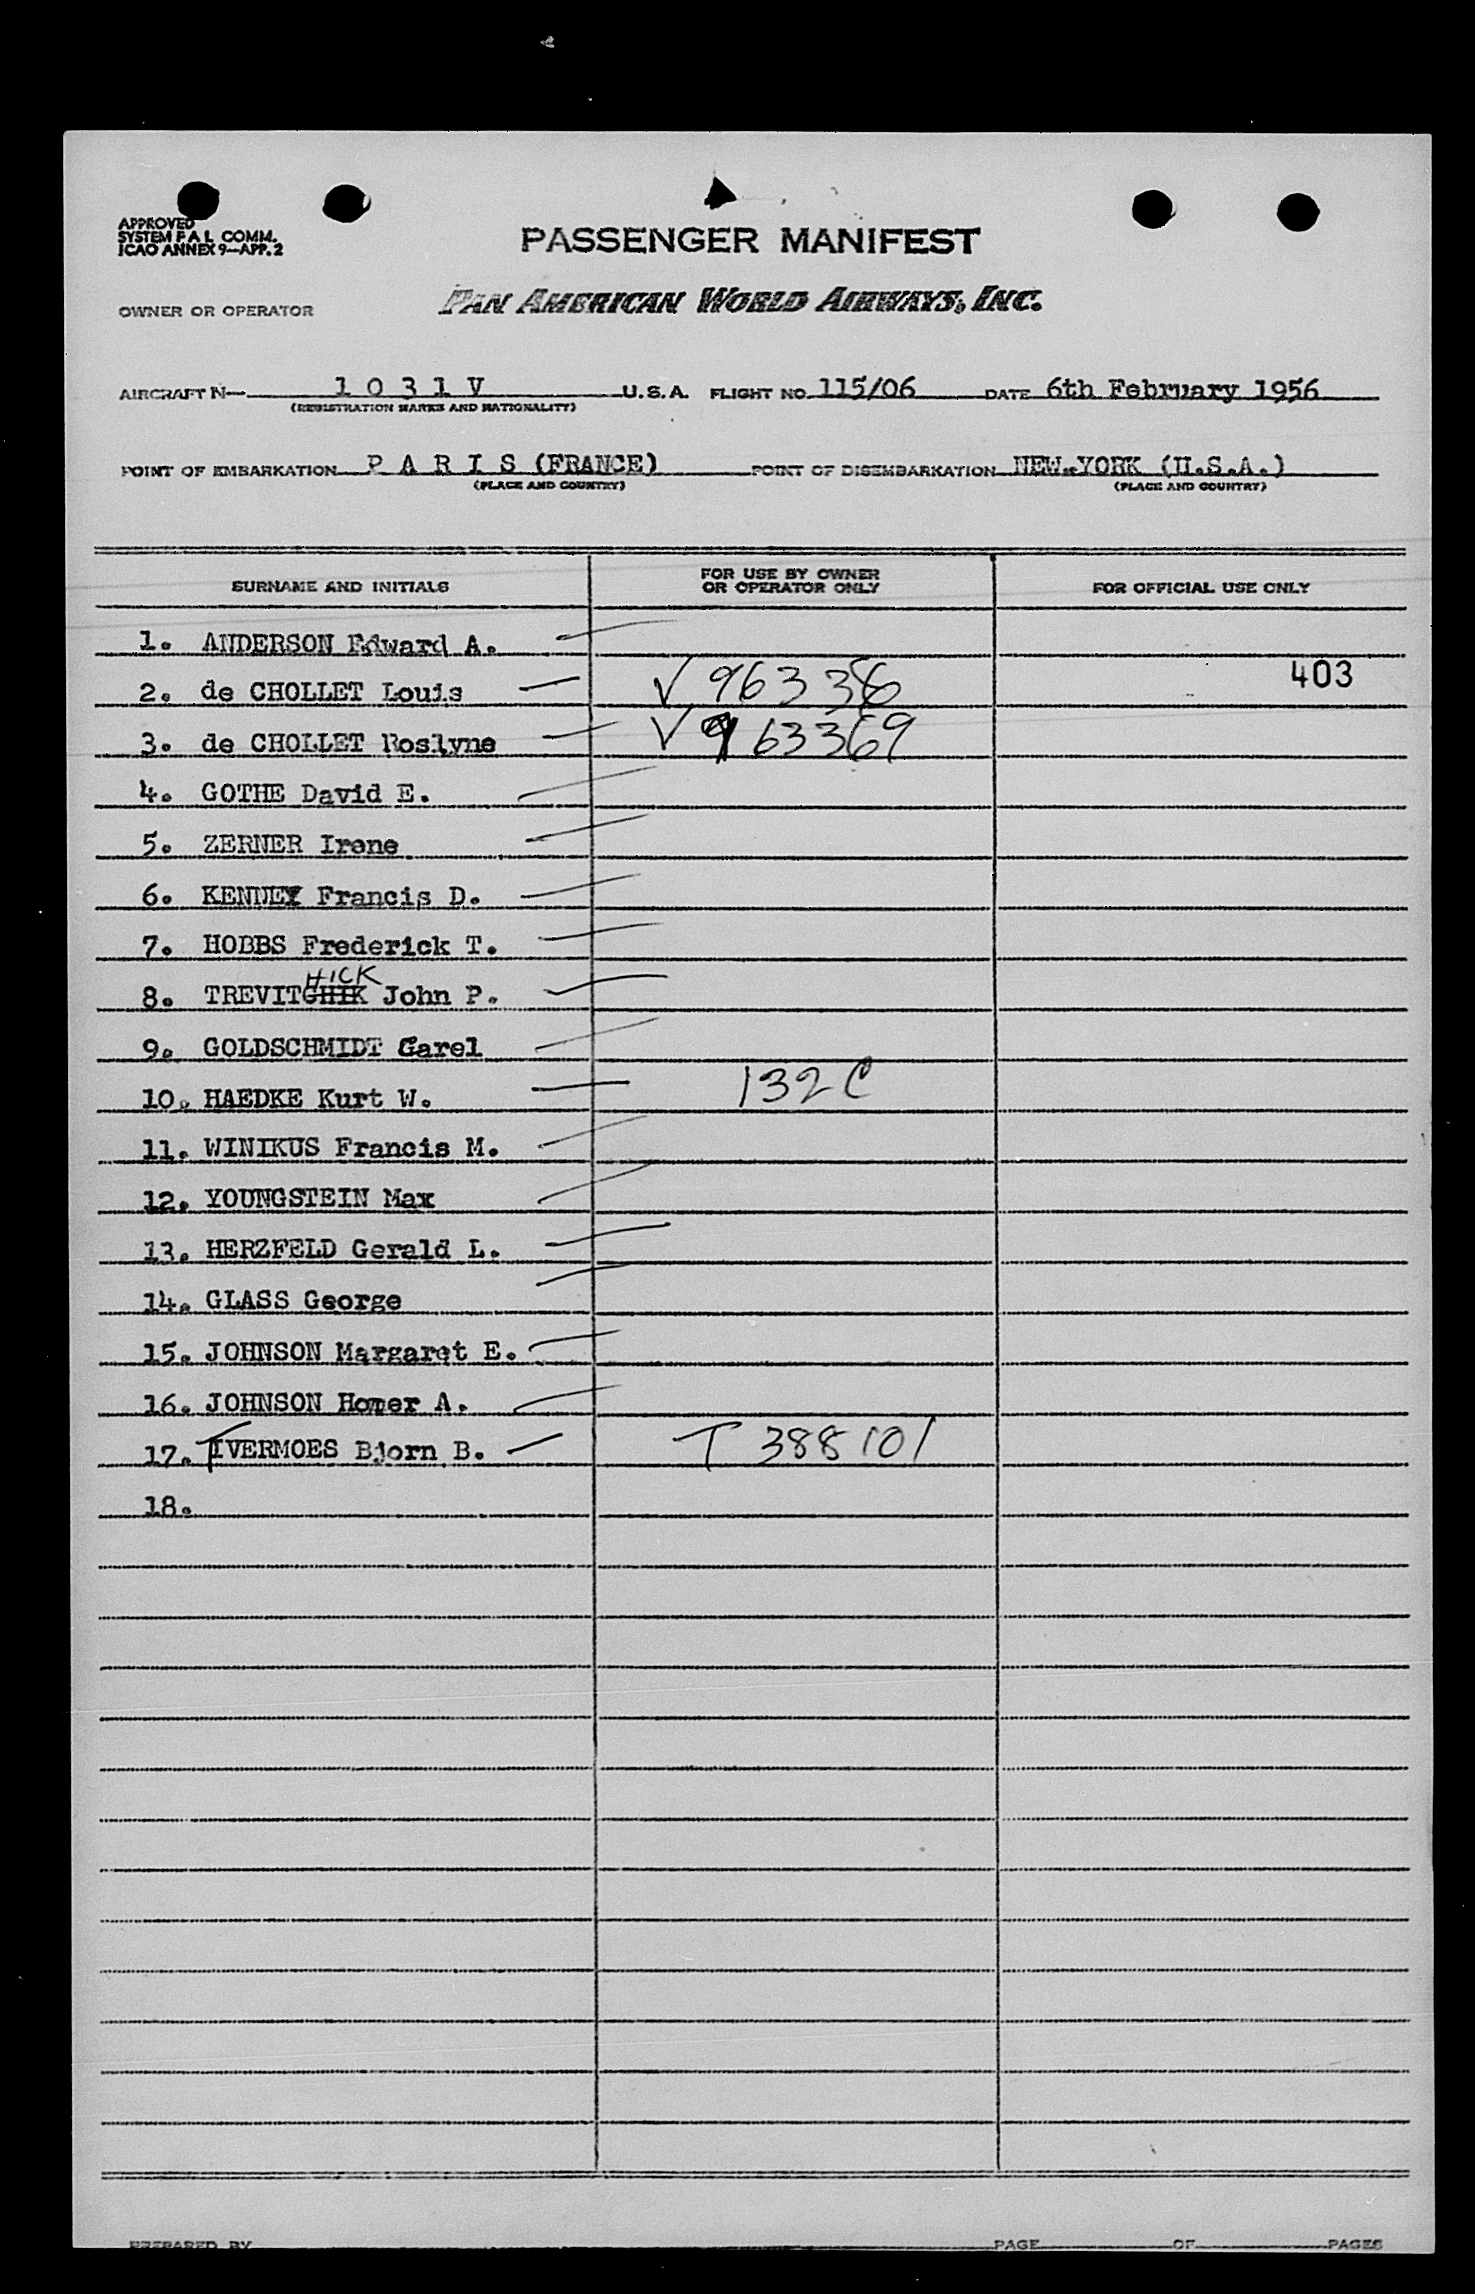 APPROVED
SYSTEM F A L COMM.
ICAO ANNEX 9—APP. 2
PASSENGER MANIFEST
OWNER OR OPERATOR PAN AMERICAN WORLD AIRWAYS, INC.
AIRCRAFT N— 1 0 3 1 V U.S.A. FLIGHT NO. 115/06 DATE 6th February 1956
(REGISTRATION MARKS AND NATIONALITY)
POINT OF EMBARKATION P A R I S (FRANCE) POINT OF DISEMBARKATION NEW.YORK (U.S.A.)
(PLACE AND COUNTRY) (PLACE AND COUNTRY)
SURNAME AND INITIALS FOR USE BY OWNER OR OPERATOR ONLY FOR OFFICIAL USE ONLY
1. ANDERSON Edward A.
2. de CHOLLET Louis √ 963 403
3. de CHOLLET Roslyne √ 963369
4. GOTHE David E.
5. ZERNER Irene
6. KENNEY Francis D.
7. HOBBS Frederick T.
HICK
8. TREVITGHIK John P.
9. GOLDSCHMIDT Carel
10. HAEDKE Kurt W. 132 C
11. WINIKUS Francis M.
12. YOUNGSTEIN Max
13. HERZFELD Gerald L.
14. GLASS George
15. JOHNSON Margaret E.
16. JOHNSON Homer A.
17. TVERMOES Bjorn B. T 388101
18.
PREPARED BY PAGE OF PAGES